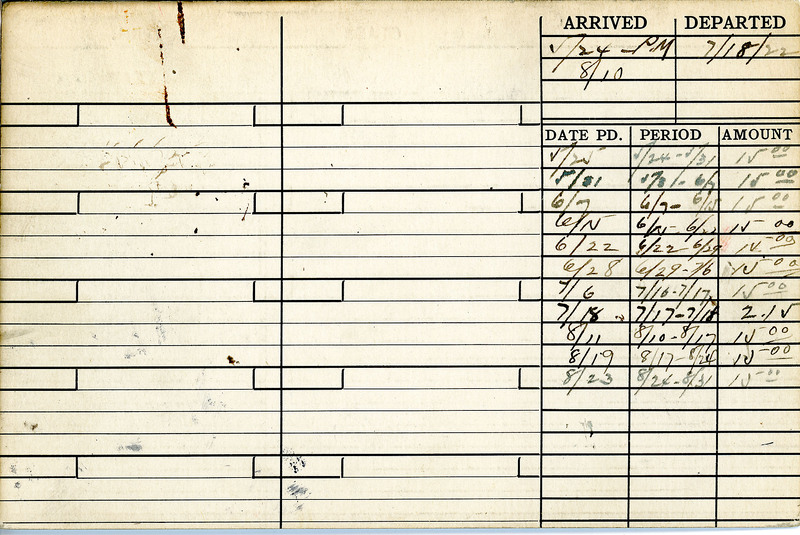 ARRIVED DEPARTED
5/24 - P.M 7/18/22
8/10
DATE PD. PERIOD AMOUNT
5/25 5/24 - 5/31 15 00
5/31 5/31 - 6/7 15 00
6/7 6/7 - 6/15 15 00
6/15 6/15 - 6/22 15 00
6/22 6/22 6/29 15 00
6/28 6/29 - 7/6 15 00
7/6 7/10 - 7/17 15 00
7/18 7/17 - 7/18 2.15
8/11 8/10 - 8/17 15 00
8/19 8/17 - 8/24 15 00
8/23 8/24 - 8/31 15 00